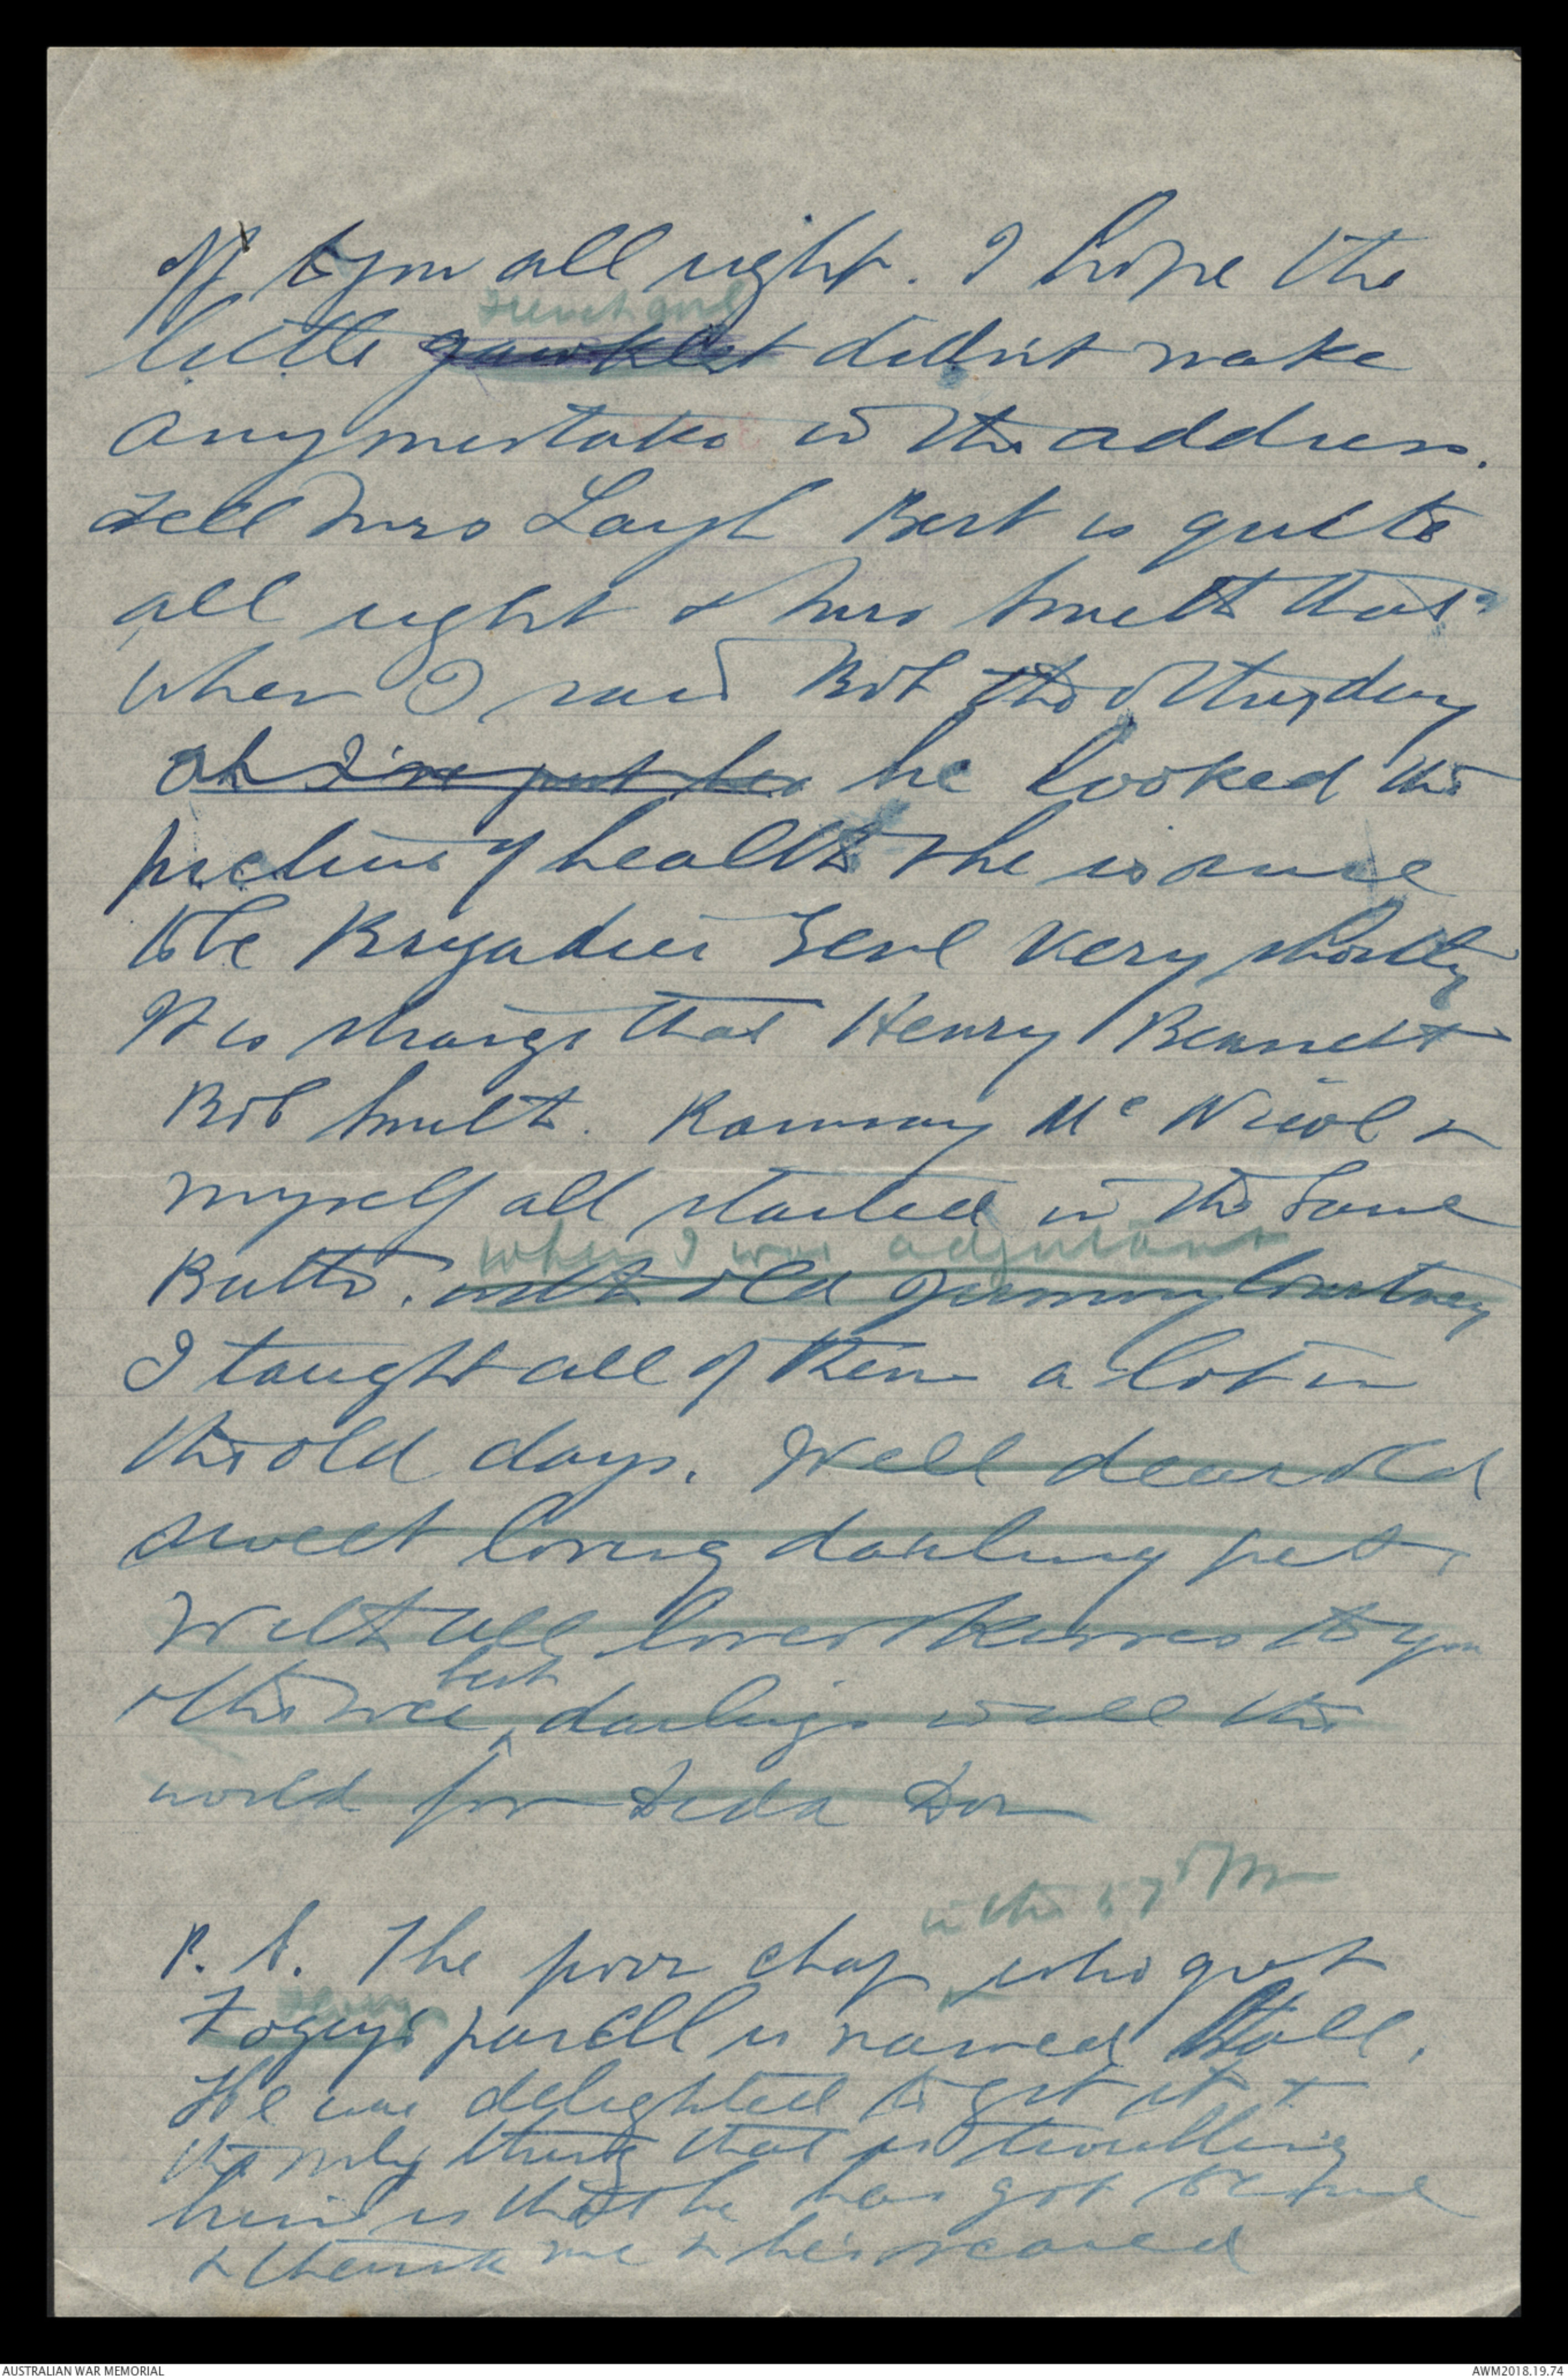 off to you all right. I hope the
French girl
little didn't make
any mistake in the address.
Tell Mrs Layh Bert is quite
all right & Mrs Smith that
when I saw Bob the other day
Oh I've put her he looked the
picture of health & he is sure
to be Brigadier Genl very shortly
It is strange that Henry Bennett
Bob Smith. Ramsay McNicol &
myself all started in the same
when I was adjutant
Battn. with old Jimmy Courtney
I taught all of them a lot in
the old days. Well dear old
sweet loving darling pet
With all love & kisses to you
best
& the wee darlings in all the
world for Dida Don
in the 57th Bn
P.S. The poor chap who got
parcel is named Hall.
He was delighted to get it &
the only thing that is troubling
him is that he has got to come
& thank me & he's scared
AUSTRALIAN WAR MEMORIAL
AWM2018.19.74